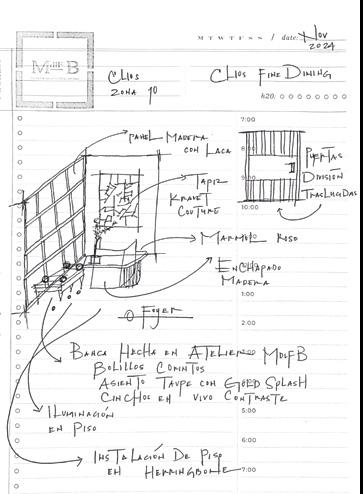 M T W T F S S / date: Nov 2024
MDEFB
CLIOS
ZONA 10
CLIOS FINE DINING
h2o:
7:00
PANEL MADERA
CON LACA
TAPIZ
KRAVET
COUTURE
PUERTAS
DIVISIÓN
TRASLUCIDAS
9:00
10:00
MARMOL ROSO
ENCHAPADO
MADERA
1:00
FOYER
2:00
BANCA HECHA EN ATELIER MDFB
BOLILLOS CORINTOS
ASIENTO TAUPE CON GOLD SPLASH
CINCHOS EN VIVO CONTRASTE
5:00
ILUMINACIÓN
EN PISO
6:00
INSTALACIÓN DE PISO
EN HERRINGBONE
7:00